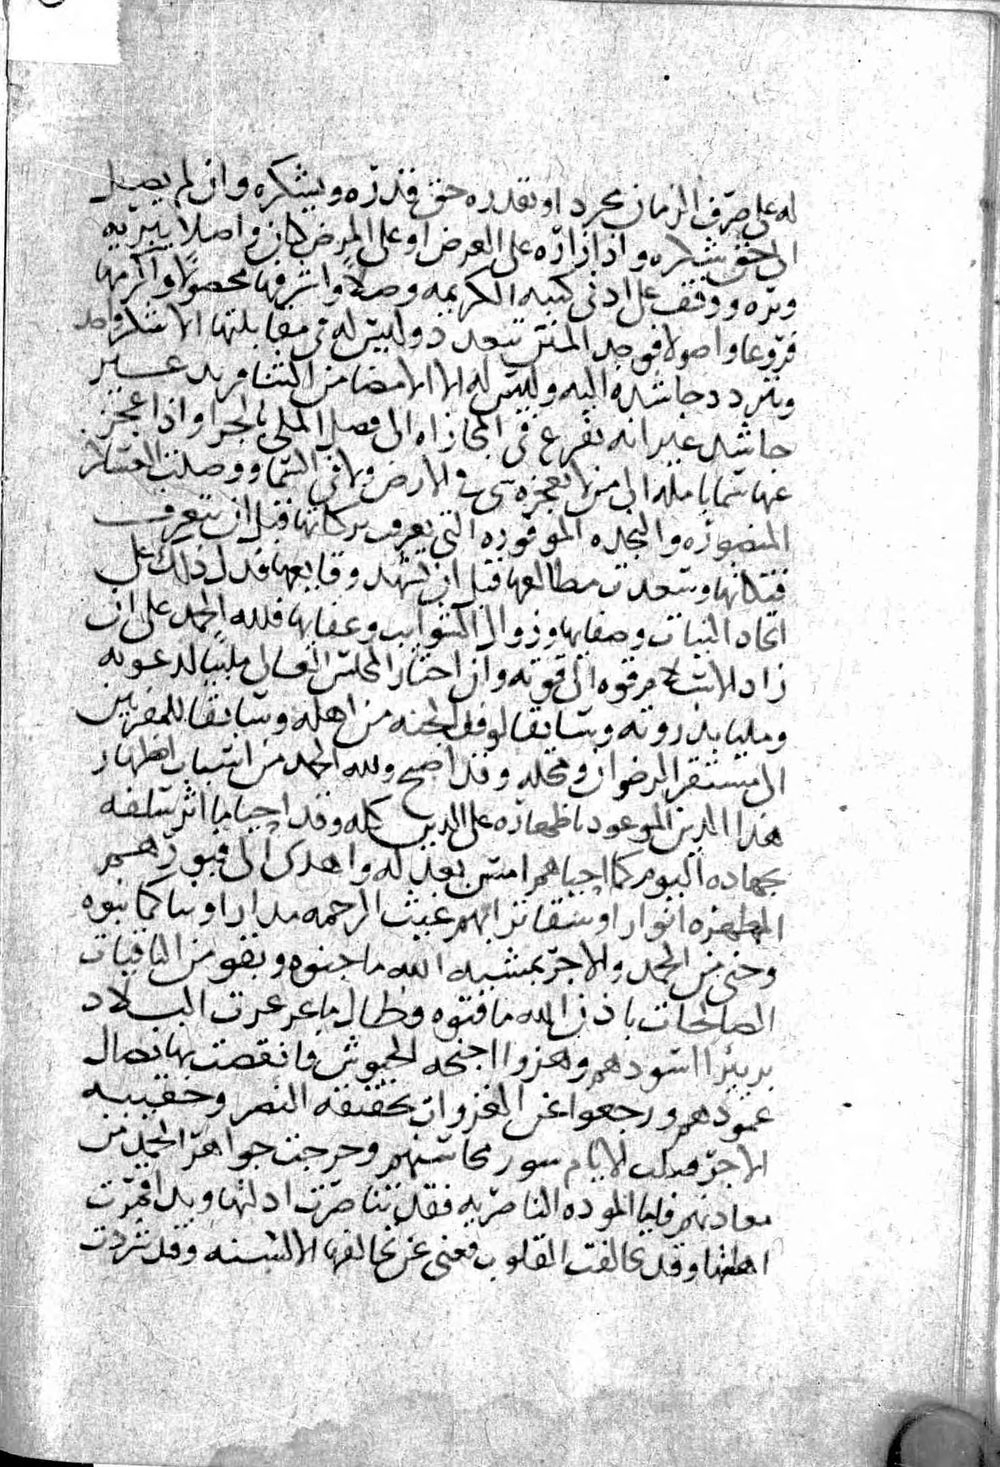 له على صرف الزمان يجرد او يقدره حق قدره ويشكره وان لم يصل
الى حق شكره واذا زاره على العرض او على المرض كان واصلا ببريه
وبره ووقف على ادنى كتبه الكريمه وصلا واشرفها محصولا واكرمها
فروعا واصولا فوجد المنن تتعدد وليس له في مقابلتها الا شكر واحد
وتتردد حاشده اليه وليس له الا الامضا من الثنا مريد غير
حاشد غير انه يفزع في المجازاه الى فضل الملي بالجزا واذا عجز
عنها شما بامله الى من لا يعجزه شي في الارض ولا في السما ووصلت العساكر
المنصوره والنجده الموفوره التي يعرف بركاتها قبل ان تتعرف
فتكاتها وسعدت مطالعها قبل ان تشهد وقايعها فدل ذلك على
اتحاد النيات وصفايها وزوال الشوايب وعفايها فلله الحمد على ان
زاد الاسلام قوه الى قوته وان اختار المجلس العالي ملبيا لدعوته
ومليا بذروته وسابقا لوفد الجنه من اهله وسابقا للمقربين
الى مستقر الرضوان ومحله وقد اصبح ولله الحمد من اسباب اظهار
هذا الدين الموعود باظهاره على الدين كله وقد احيا ما اثر سلفه
بجهاده اليوم كما احياهم امس بعدله واهدى الى قبورهم
المطهره انوارا وسقا ترابهم غيث الرحمه مدرارا وبنا كما بنوه
وجنى من الحمد والاجر بمشيه الله ما جنوه وبقو من الباقيات
الصالحات باذن الله ما قنوه وطال ما عرعرت البلاد
بزئير اسودهم وهزوا اجنحه الجيوش فانقضت بها نصال
غمودهم ورجعوا عن الغزوات بحقيقه النصر وحقيبه
الاجر فدلت الايام سور محاسنهم وخرجت جواهر الحمد من
معادنهم فاما الموده الناصريه فقد تناصرت ادلتها وبدا قمرت
اهلتها وقد تحالفت القلوب فغنى عن تحالفها الالسنه وقد تردت